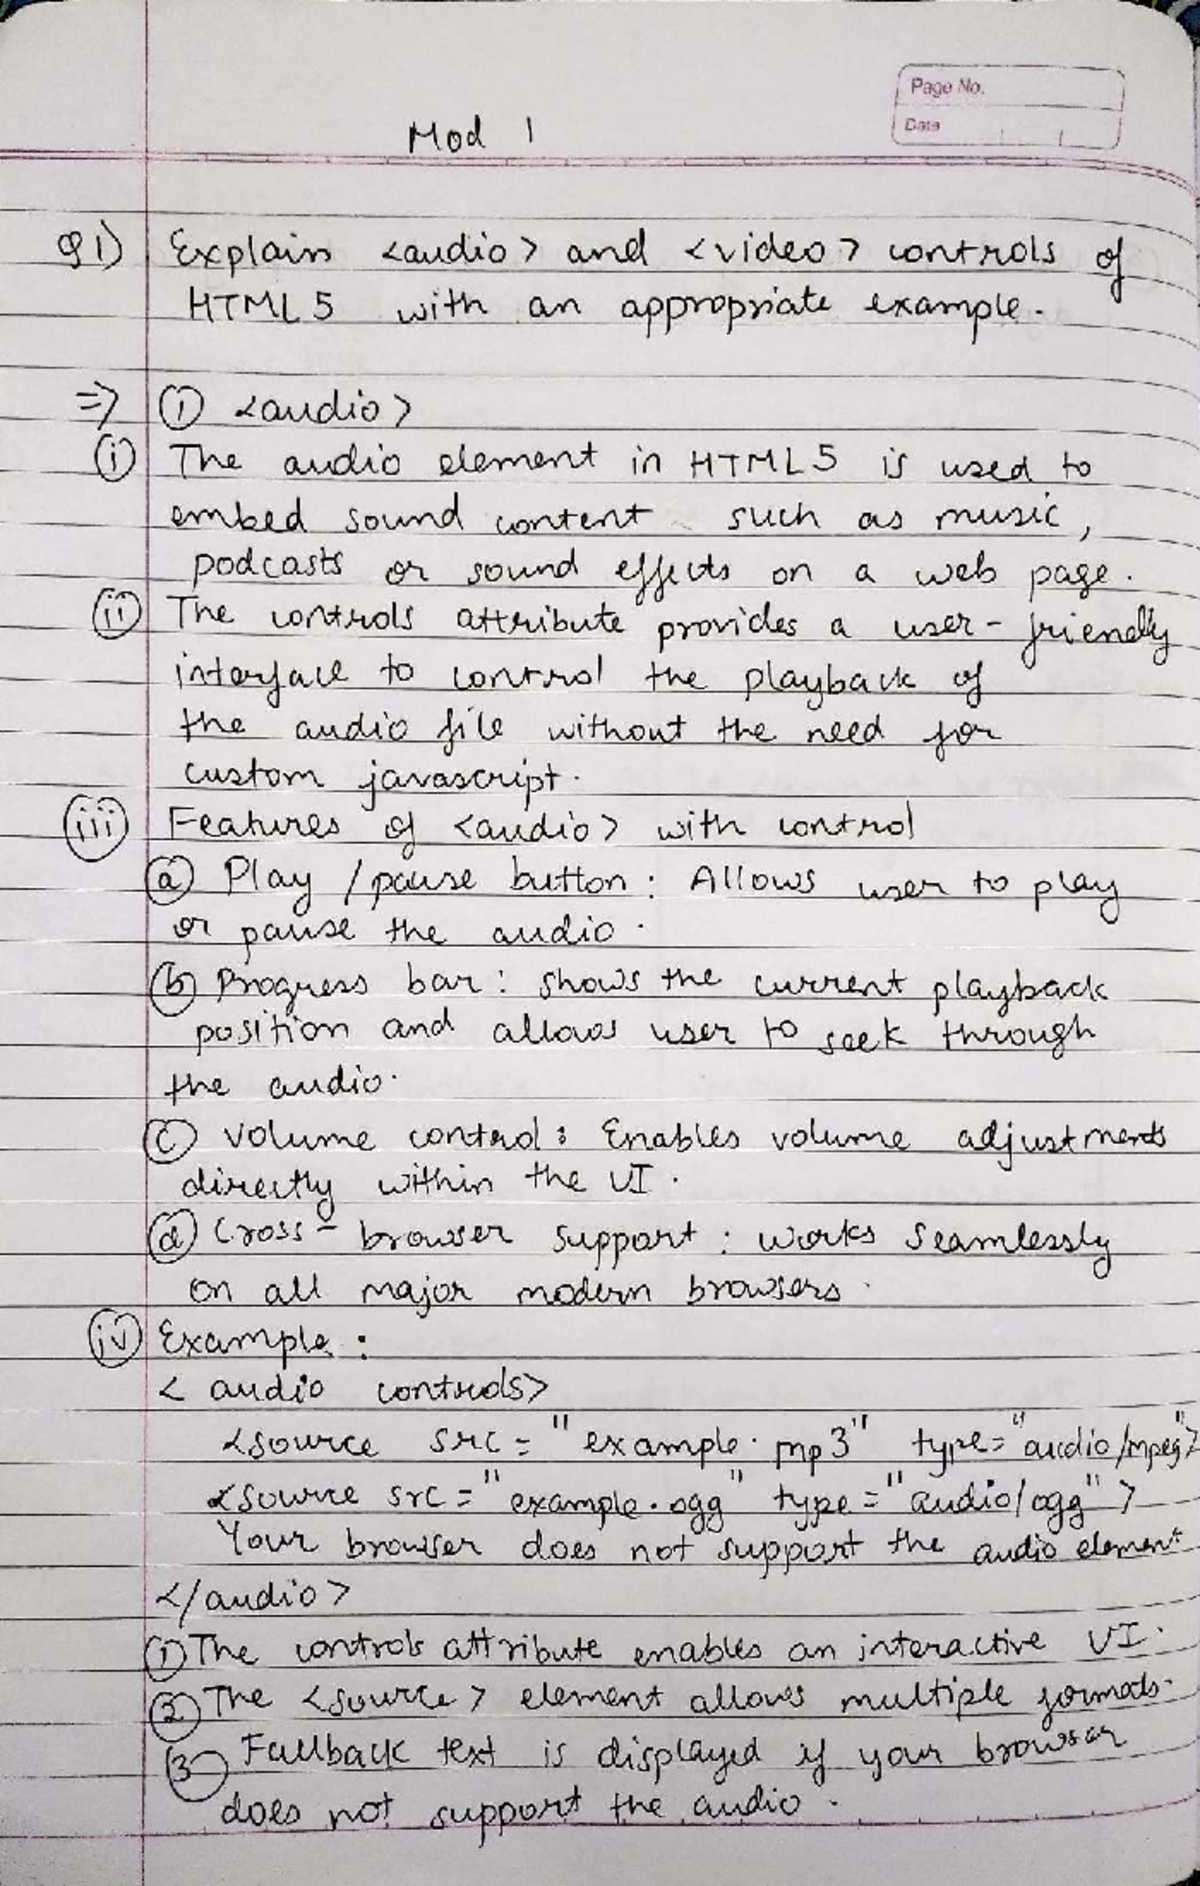 Page No.
Date
Mod 1
Q1) Explain <audio> and <video> controls of
HTML5 with an appropriate example.
=> ① <audio>
(i) The audio element in HTML5 is used to
embed sound content such as music,
podcasts or sound effects on a web page.
(ii) The controls attribute provides a user-friendly
interface to control the playback of
the audio file without the need for
custom javascript.
(iii) Features of <audio> with control
(a) Play /pause button: Allows user to play
or pause the audio.
(b) Progress bar: shows the current playback
position and allows user to seek through
the audio.
(c) Volume control: Enables volume adjustments
directly within the UI.
(d) Cross-browser support: works seamlessly
on all major modern browsers.
(iv) Example:
< audio controls>
<source src="example.mp3" type="audio/mpeg">
<source src="example.ogg" type="audio/ogg">
Your browser does not support the audio element
</audio>
① The controls attribute enables an interactive UI.
② The <source> element allows multiple formats.
③ Fallback text is displayed if your browser
does not support the audio.